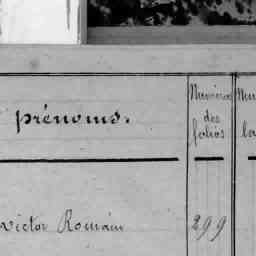 prénoms.
Numéros
des
folios
victor Romain
299